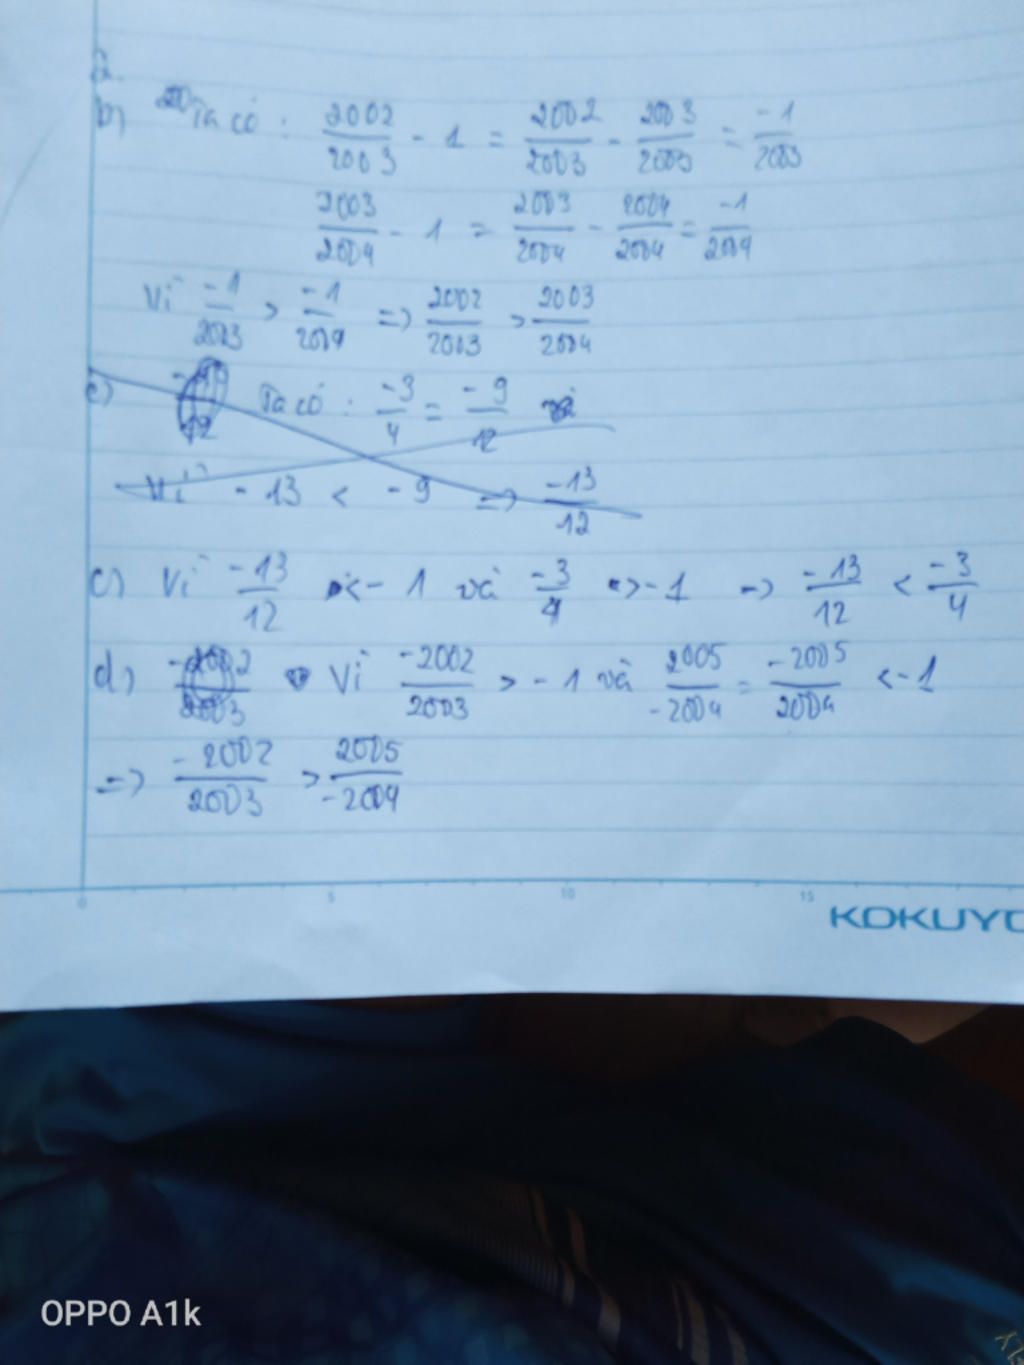 2.
b) Ta có : 2002/2003 - 1 = 2002/2003 - 2003/2003 = -1/2003
2003/2004 - 1 = 2003/2004 - 2004/2004 = -1/2004
Vì -1/2003 > -1/2004 => 2002/2003 > 2003/2004
c) Ta có : -3/4 = -9/12
Vì -13 < -9 => -13/12
c) Vì -13/12 < -1 và -3/4 > -1 => -13/12 < -3/4
d) Vì -2002/2003 > -1 và 2005/-2004 = -2005/2004 < -1
=> -2002/2003 > 2005/-2004
0 5 10 15
KOKUYO
OPPO A1k